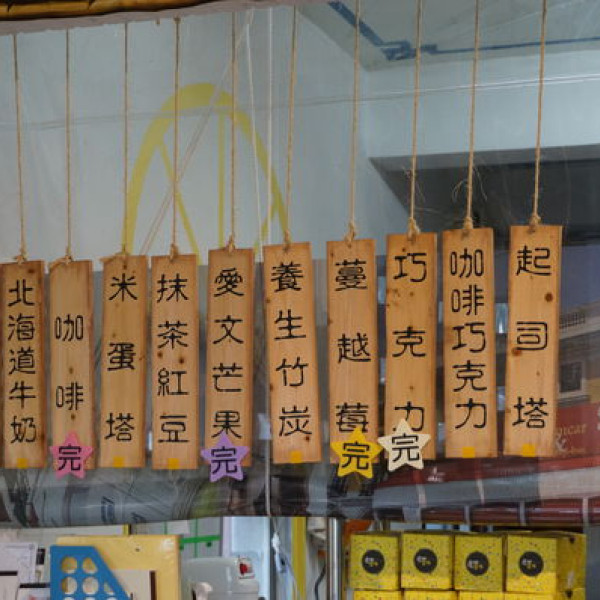 北海道牛奶
咖啡
完
米蛋塔
抹茶紅豆
愛文芒果
完
養生竹炭
蔓越莓
完
巧克力
完
咖啡巧克力
起司塔